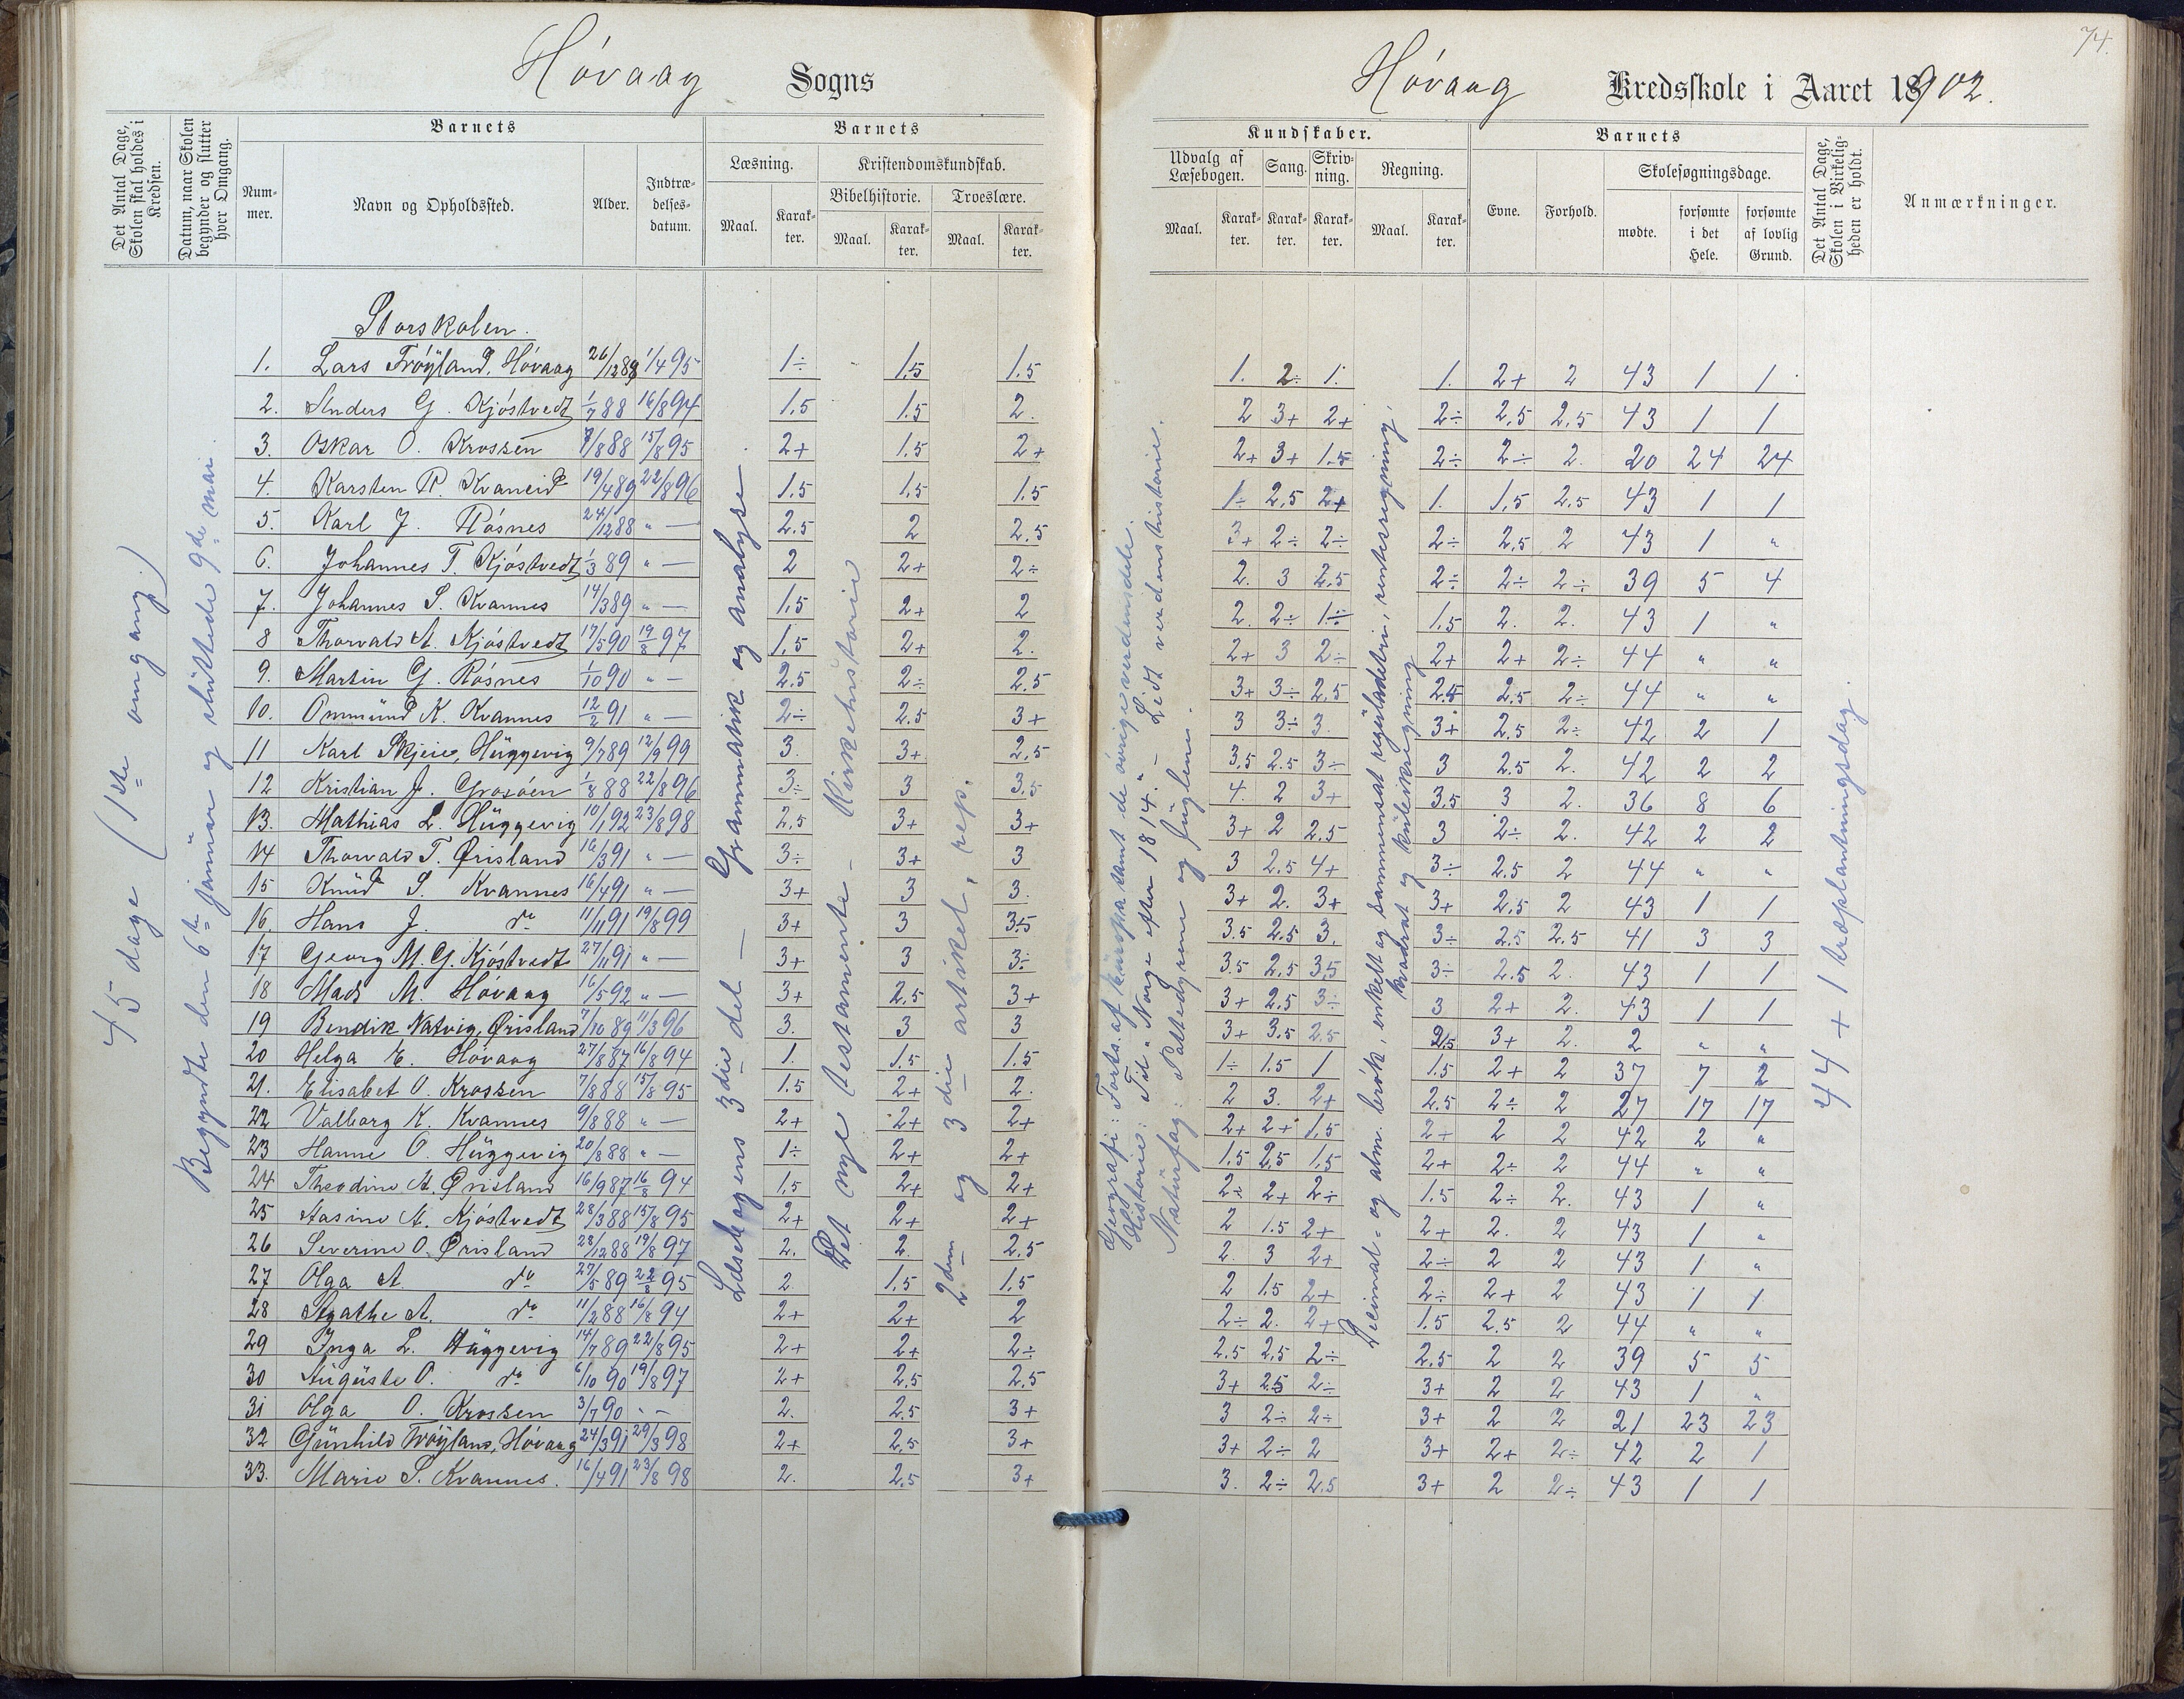 74.
Hóvaag Sogns
Hóvaag Kredsskole i Aaret 18902.
Det Antal Dage, Skolen skal holdes i Kredsen.
Datum, naar Skolen begynder og slutter hver Omgang.
Barnets
Num-mer.
Navn og Opholdssted.
Alder.
Indtræ-delses-datum.
Barnets
Læsning.
Kristendomskundskab.
Bibelhistorie.
Troeslære.
Maal.
Karak-ter.
Maal.
Karak-ter.
Maal.
Karak-ter.
Kundskaber.
Udvalg af Læsebogen.
Sang.
Skriv-ning.
Regning.
Maal.
Karak-ter.
Karak-ter.
Karak-ter.
Maal.
Karak-ter.
Barnets
Evne.
Forhold.
Skolesøgningsdage.
mødte.
forsømte i det Hele.
forsømte af lovlig Grund.
Det Antal Dage, Skolen i Virkelig-heden er holdt.
Anmærkninger.
45 dage (1ste omgang)
Begyndte den 6te januar og sluttede 9de mai.
Læsebogens 3die del — Grammatik og analyse.
Det nye testamente — Kirkehistorie
2den og 3die artikel, rep.
Geografi: Forts. af Europa samt de øvrige verdensdele.
Historie: Til "Norge efter 1814." – Lidt verdenshistorie.
Naturfag: Pattedyrene og fuglene.
Decimal- og alm. brøk, enkelt og sammensat reguladetri, rentesregning, kvadrat og kubikregning
44 + 1 træplantningsdag.
Storskolen.
1. Lars Trøyland, Hóvaag 26/12 89 1/4 95 1÷ 1.5 1.5 1. 2÷ 1. 1. 2+ 2 43 1 1
2. Anders G. Kjóstvedt 1/7 88 16/8 94 1.5 1.5 2. 2 3+ 2+ 2÷ 2.5 2.5 43 1 1
3. Oskar O. Krossen 7/8 88 15/8 95 2+ 1.5 2+ 2+ 3+ 1.5 2÷ 2÷ 2. 20 24 24
4. Karsten R. Kvaneid 19/4 89 22/8 96 1.5 1.5 1.5 1÷ 2.5 2+ 1. 1.5 2.5 43 1 1
5. Karl J. Rósnes 24/12 88 " — 2.5 2 2.5 3+ 2÷ 2÷ 2÷ 2.5 2 43 1 "
6. Johannes T. Kjóstvedt 1/3 89 " — 2 2+ 2÷ 2. 3 2.5 2÷ 2÷ 2÷ 39 5 4
7. Johannes S. Kvannes 14/3 89 " — 1.5 2+ 2 2. 2÷ 1÷ 1.5 2. 2. 43 1 "
8 Thorvald A. Kjóstvedt 17/5 90 19/8 97 1.5 2+ 2. 2+ 3 2÷ 2+ 2+ 2÷ 44 " "
9. Martin G. Rósnes 1/10 90 " — 2.5 2÷ 2.5 3+ 3÷ 2.5 2.5 2.5 2÷ 44 " "
10. Ommund K. Kvannes 12/2 91 " — 2÷ 2.5 3+ 3 3÷ 3. 3+ 2.5 2÷ 42 2 1
11 Karl Skjeie, Huggevig 9/7 89 12/9 99 3. 3+ 2.5 3.5 2.5 3÷ 3 2.5 2. 42 2 2
12 Kristian J. Grosøen 1/8 88 22/8 96 3÷ 3 3.5 4. 2 3+ 3.5 3 2. 36 8 6
13. Mathias L. Huggevig 10/1 92 23/8 98 2.5 3+ 3+ 3+ 2 2.5 3 2÷ 2. 42 2 2
14 Thorvald T. Ørisland 16/3 91 " — 3÷ 3+ 3 3 2.5 4+ 3÷ 2.5 2 44 " "
15 Knud S. Kvannes 16/4 91 " — 3+ 3 3. 3+ 2. 3+ 3+ 2.5 2 43 1 1
16. Hans J. do 11/11 91 19/8 99 3+ 3 3.5 3.5 2.5 3. 3÷ 2.5 2.5 41 3 3
17 Georg M. G. Kjóstvedt 27/11 91 " — 3+ 3 3÷ 3.5 2.5 3.5 3÷ 2.5 2. 43 1 1
18 Mads M. Hóvaag 16/5 92 " — 3+ 2.5 3+ 3+ 2.5 3÷ 3 2+ 2. 43 1 1
19 Bendik Natvig, Ørisland 7/10 89 11/3 96 3. 3 3 3+ 3.5 2.5 2.5 3+ 2. 2 " "
20 Helga E. Hóvaag 27/8 87 16/8 94 1. 1.5 1.5 1÷ 1.5 1 1.5 2+ 2 37 7 2
21. Elisabet O. Krossen 7/8 88 15/8 95 1.5 2+ 2. 2 3. 2+ 2.5 2÷ 2 27 17 17
22 Valborg K. Kvannes 9/8 88 " — 2+ 2+ 2+ 2+ 2+ 1.5 2+ 2 2 42 2 "
23 Hanne O. Huggevig 20/8 88 " — 1÷ 2+ 2+ 1.5 2.5 1.5 2+ 2÷ 2 44 " "
24 Theodine A. Ørisland 16/9 87 16/8 94 1.5 2+ 2+ 2÷ 2+ 2÷ 1.5 2÷ 2. 43 1 "
25 Aasine A. Kjóstvedt 28/3 88 15/8 95 2+ 2+ 2+ 2 1.5 2+ 2+ 2. 2 43 1 "
26 Severine O. Ørisland 28/12 88 19/8 97 2. 2. 2.5 2. 3 2+ 2÷ 2 2 43 1 "
27 Olga A. do 27/5 89 22/8 95 2 1.5 1.5 2 1.5 2+ 2÷ 2+ 2 43 1 1
28 Agathe A. do 11/2 88 16/8 94 2+ 2+ 2 2÷ 2. 2+ 1.5 2.5 2 44 " "
29 Inga L. Huggevig 14/7 89 22/8 95 2+ 2+ 2÷ 2.5 2.5 2÷ 2.5 2 2 39 5 5
30 Auguste O. do 6/10 90 19/8 97 2+ 2.5 2.5 3+ 2.5 2÷ 3+ 2 2 43 1 "
31 Olga O. Krossen 3/7 90 " — 2. 2.5 3+ 3 2÷ 2÷ 3+ 2 2 21 23 23
32 Gunhild Trøyland, Hóvaag 24/3 91 29/3 98 2+ 2.5 3+ 3+ 2÷ 2 3+ 2+ 2÷ 42 2 1
33. Marie S. Kvannes. 16/4 91 23/8 98 2. 2.5 3+ 3. 2÷ 2.5 3+ 2 2÷ 43 1 1